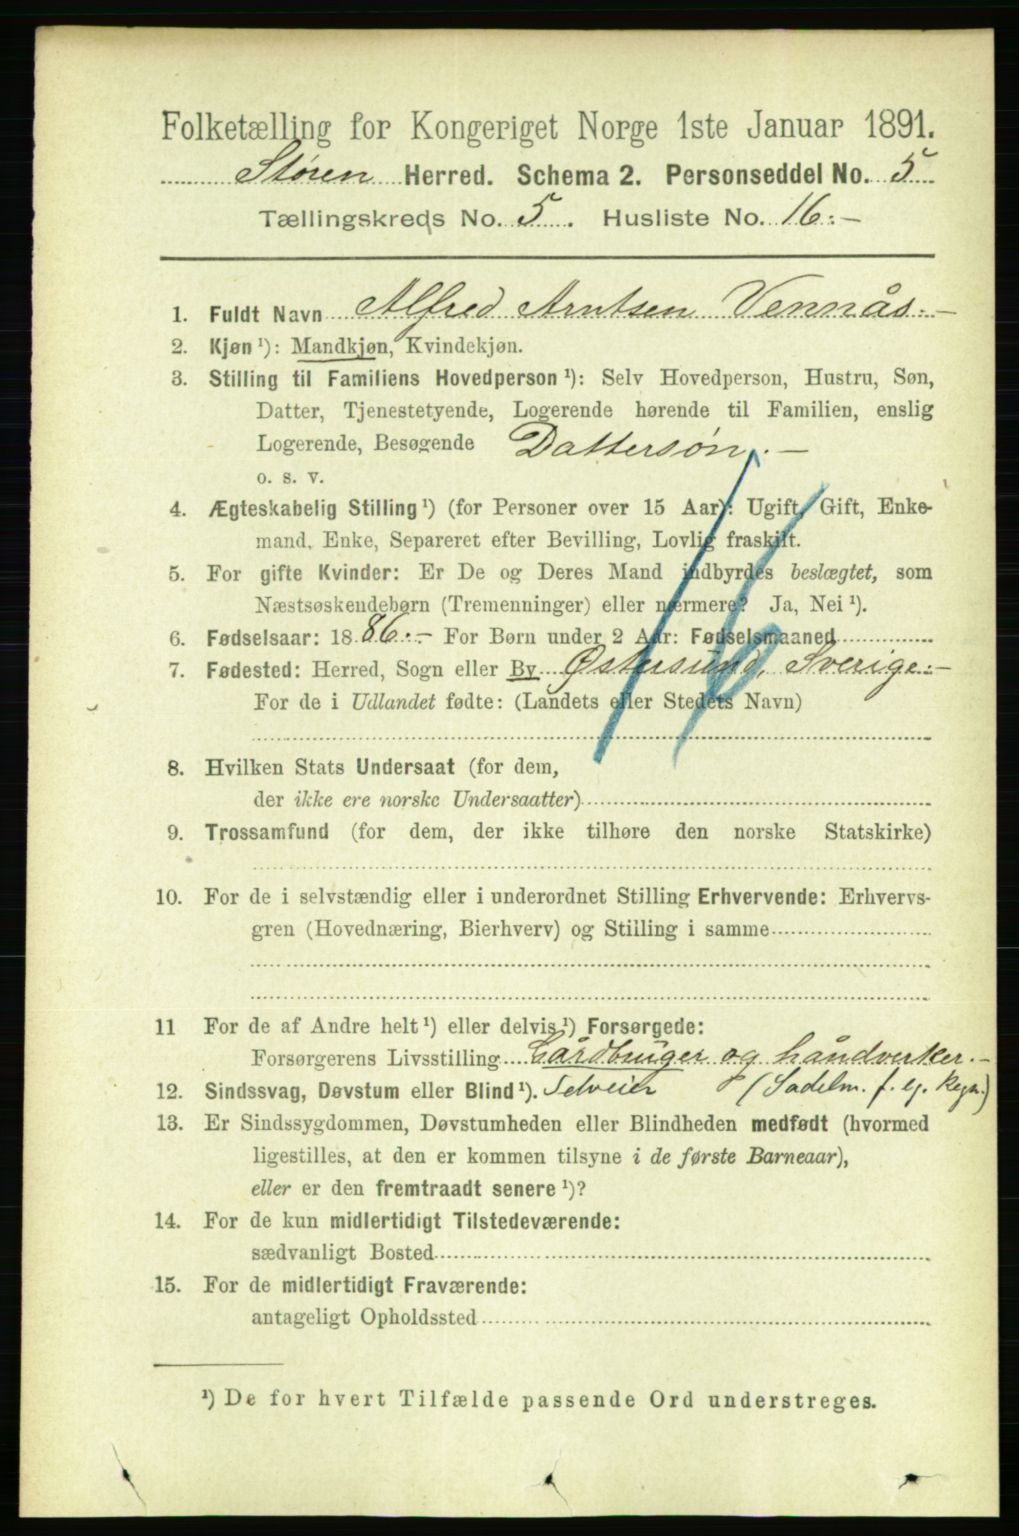 Folketælling for Kongeriget Norge 1ste Januar 1891.
Støren Herred. Schema 2. Personseddel No. 5
Tællingskreds No. 5. Husliste No. 16.-
1. Fuldt Navn Alfred Arntsen Vennås.-
2. Kjøn ¹): Mandkjøn, Kvindekjøn.
3. Stilling til Familiens Hovedperson ¹): Selv Hovedperson, Hustru, Søn,
Datter, Tjenestetyende, Logerende hørende til Familien, enslig
Logerende, Besøgende Dattersøn.-
o. s. v.
4. Ægteskabelig Stilling ¹) (for Personer over 15 Aar): Ugift, Gift, Enke-
mand, Enke, Separeret efter Bevilling, Lovlig fraskilt.
5. For gifte Kvinder: Er De og Deres Mand indbyrdes beslægtet, som
Næstsøskendebørn (Tremenninger) eller nærmere? Ja, Nei ¹).
6. Fødselsaar: 1886.- For Børn under 2 Aar: Fødselsmaaned
7. Fødested: Herred, Sogn eller By Østersund, Sverige.-
For de i Udlandet fødte: (Landets eller Stedets Navn)
8. Hvilken Stats Undersaat (for dem,
der ikke ere norske Undersaatter)
9. Trossamfund (for dem, der ikke tilhøre den norske Statskirke)
10. For de i selvstændig eller i underordnet Stilling Erhvervende: Erhvervs-
gren (Hovednæring, Bierhverv) og Stilling i samme
11 For de af Andre helt ¹) eller delvis ¹) Forsørgede:
Forsørgerens Livsstilling Gårdbruger og håndverker.-
12. Sindssvag, Døvstum eller Blind ¹). Selveier (Sadelm. f. eg. Regn.)
13. Er Sindssygdommen, Døvstumheden eller Blindheden medfødt (hvormed
ligestilles, at den er kommen tilsyne i de første Barneaar),
eller er den fremtraadt senere ¹)?
14. For de kun midlertidigt Tilstedeværende:
sædvanligt Bosted
15. For de midlertidigt Fraværende:
antageligt Opholdssted
¹) De for hvert Tilfælde passende Ord understreges.